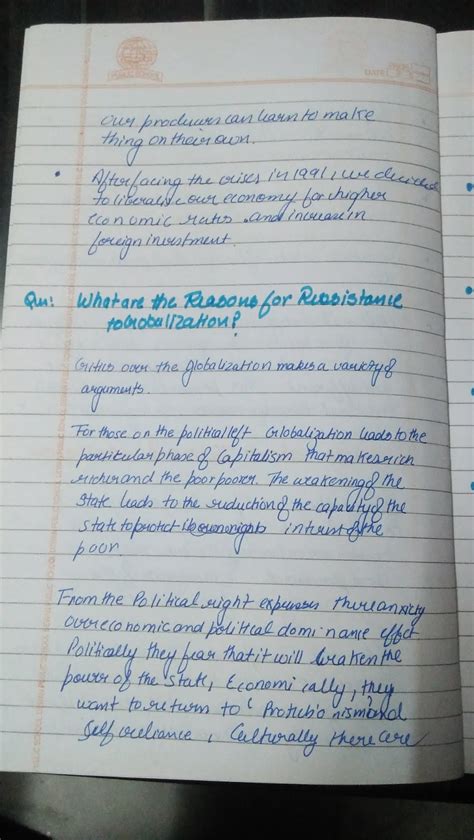 PUBLIC SCHOOL
DATE:
our producers can learn to make
thing on their own.
• After facing the crises in 1991, we decided
to liberalise our economy for higher
economic rates and increase in
foreign investment.
Qu: What are the Reasons for Ressistance
to Globalization?
Critics over the globalization makes a variety of
arguments.
For those on the political left Globalization leads to the
particular phase of Capitalism that makes rich
richer and the poor poorer. The weakening of the
State leads to the reduction of the capacity of the
state to protect interest of the
poor
From the Political right expresses there anxiety
over economic and political dominance effect
Politically they fear that it will weaken the
power of the state, Economically, they
want to return to 'Protectionism and
Self reliance, Culturally there are